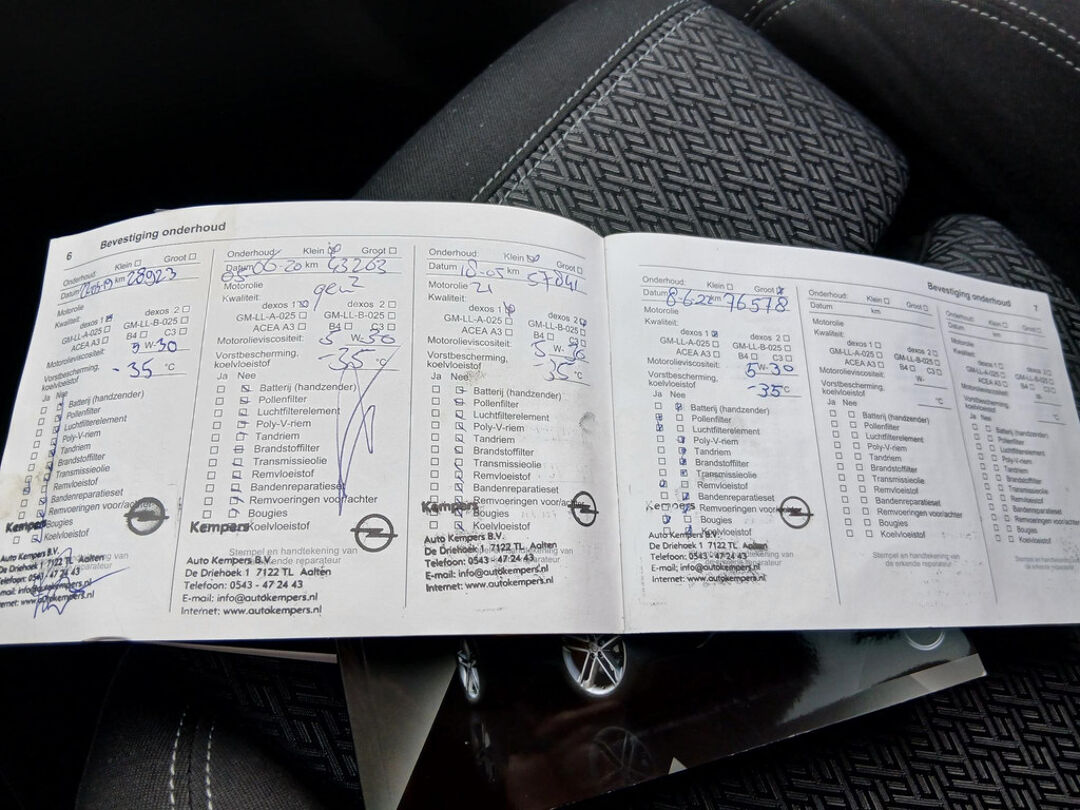 6 Bevestiging onderhoud
Onderhoud: Klein ☐ Groot ☐
Datum km 28923
Motorolie
Kwaliteit:
dexos 1 ☒ dexos 2 ☐
GM-LL-A-025 ☐ GM-LL-B-025 ☐
ACEA A3 ☐ B4 ☐ C3 ☐
Motorolieviscositeit: 5 W-30
Vorstbescherming,
koelvloeistof -35 °C
Ja Nee
Batterij (handzender)
Pollenfilter
Luchtfilterelement
Poly-V-riem
Tandriem
Brandstoffilter
Transmissieolie
Remvloeistof
Bandenreparatieset
Remvoeringen voor/achter
Bougies
Koelvloeistof
Kempers
Auto Kempers B.V.
De Driehoek 1 7122 TL Aalten
Telefoon: 0543 - 47 24 43
E-mail: info@autokempers.nl
Internet: www.autokempers.nl
Onderhoud: Klein ☒ Groot ☐
Datum 03-06-20 km 43263
Motorolie gen2
Kwaliteit:
dexos 1 ☒ dexos 2 ☐
GM-LL-A-025 ☐ GM-LL-B-025 ☐
ACEA A3 ☐ B4 ☐ C3 ☐
Motorolieviscositeit: 5 W-30
Vorstbescherming,
koelvloeistof -35 °C
Ja Nee
Batterij (handzender)
Pollenfilter
Luchtfilterelement
Poly-V-riem
Tandriem
Brandstoffilter
Transmissieolie
Remvloeistof
Bandenreparatieset
Remvoeringen voor/achter
Bougies
Koelvloeistof
Kempers
Stempel en handtekening van
de erkende reparateur
Auto Kempers B.V.
De Driehoek 1 7122 TL Aalten
Telefoon: 0543 - 47 24 43
E-mail: info@autokempers.nl
Internet: www.autokempers.nl
Onderhoud: Klein ☒ Groot ☐
Datum 10-05 km 57041
Motorolie 21
Kwaliteit:
dexos 1 ☒ dexos 2 ☐
GM-LL-A-025 ☐ GM-LL-B-025 ☐
ACEA A3 ☐ B4 ☐ C3 ☐
Motorolieviscositeit: 5 W-30
Vorstbescherming,
koelvloeistof -35 °C
Ja Nee
Batterij (handzender)
Pollenfilter
Luchtfilterelement
Poly-V-riem
Tandriem
Brandstoffilter
Transmissieolie
Remvloeistof
Bandenreparatieset
Remvoeringen voor/achter
Bougies
Koelvloeistof
Kempers
Auto Kempers B.V.
De Driehoek 1 7122 TL Aalten
Telefoon: 0543 - 47 24 43
E-mail: info@autokempers.nl
Internet: www.autokempers.nl
Bevestiging onderhoud 7
Onderhoud: Klein ☐ Groot ☒
Datum 8-6-22 km 76578
Motorolie
Kwaliteit:
dexos 1 ☒ dexos 2 ☐
GM-LL-A-025 ☐ GM-LL-B-025 ☐
ACEA A3 ☐ B4 ☐ C3 ☐
Motorolieviscositeit: 5 W-30
Vorstbescherming,
koelvloeistof -35 °C
Ja Nee
Batterij (handzender)
Pollenfilter
Luchtfilterelement
Poly-V-riem
Tandriem
Brandstoffilter
Transmissieolie
Remvloeistof
Bandenreparatieset
Remvoeringen voor/achter
Bougies
Koelvloeistof
Kempers
Auto Kempers B.V.
De Driehoek 1 7122 TL Aalten
Telefoon: 0543 - 47 24 43
E-mail: info@autokempers.nl
Internet: www.autokempers.nl
Onderhoud: Klein ☐ Groot ☐
Datum km
Motorolie
Kwaliteit:
dexos 1 ☐ dexos 2 ☐
GM-LL-A-025 ☐ GM-LL-B-025 ☐
ACEA A3 ☐ B4 ☐ C3 ☐
Motorolieviscositeit: W-
Vorstbescherming,
koelvloeistof °C
Ja Nee
Batterij (handzender)
Pollenfilter
Luchtfilterelement
Poly-V-riem
Tandriem
Brandstoffilter
Transmissieolie
Remvloeistof
Bandenreparatieset
Remvoeringen voor/achter
Bougies
Koelvloeistof
Stempel en handtekening van
de erkende reparateur
Onderhoud: Klein ☐ Groot ☐
Datum km
Motorolie
Kwaliteit:
dexos 1 ☐ dexos 2 ☐
GM-LL-A-025 ☐ GM-LL-B-025 ☐
ACEA A3 ☐ B4 ☐ C3 ☐
Motorolieviscositeit: W-
Vorstbescherming,
koelvloeistof °C
Ja Nee
Batterij (handzender)
Pollenfilter
Luchtfilterelement
Poly-V-riem
Tandriem
Brandstoffilter
Transmissieolie
Remvloeistof
Bandenreparatieset
Remvoeringen voor/achter
Bougies
Koelvloeistof
Stempel en handtekening van
de erkende reparateur